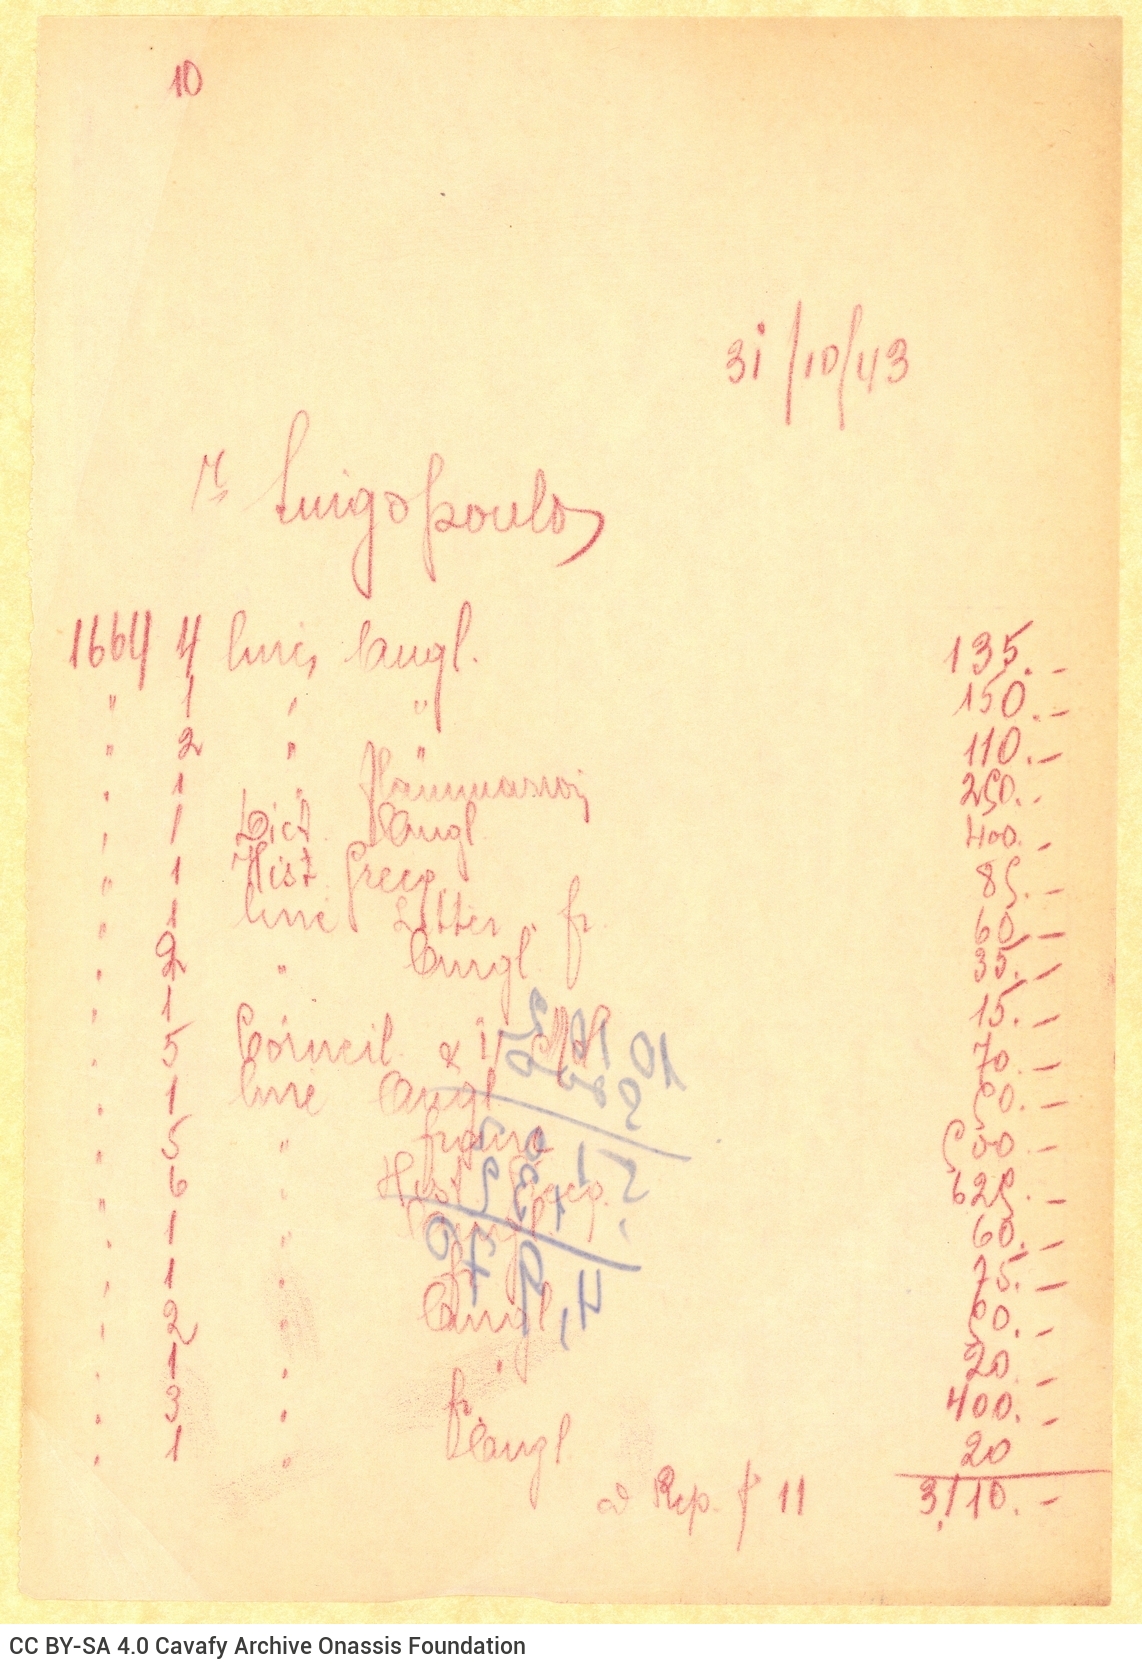 10
31/10/43
Mr Singopoulos
1664 4 livres Angl. 135.-
" 1 " " 150.-
" 2 " " 110.-
" 1 " 250.-
" 1 Dict. Angl 400.-
" 1 Hist. Grecq. 85.-
" 1 livre Litter. fr. 60.-
" 2 " Angl 35.-
" 1 15.-
" 5 70.-
" 1 livre Angl 50.-
" 5 " franc 500.-
" 6 " Hist Grecq. 625.-
" 1 " Angl. 60.-
" 1 " fr 75.-
" 2 " Angl 50.-
" 1 " " 20.-
" 3 " fr. 400.-
" 1 " Angl 20
à Rep. f 11 3,110.-
CC BY-SA 4.0 Cavafy Archive Onassis Foundation